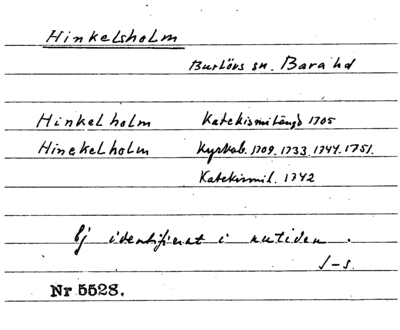 Hinkelsholm
Burlövs sn. Bara hd
Hinkelholm Katekismilängd 1705
Hinckelholm Kyrkob. 1709. 1733. 1744. 1751.
Katekismil. 1742
Ej identifierat i nutiden.
J-s.
Nr 5528.